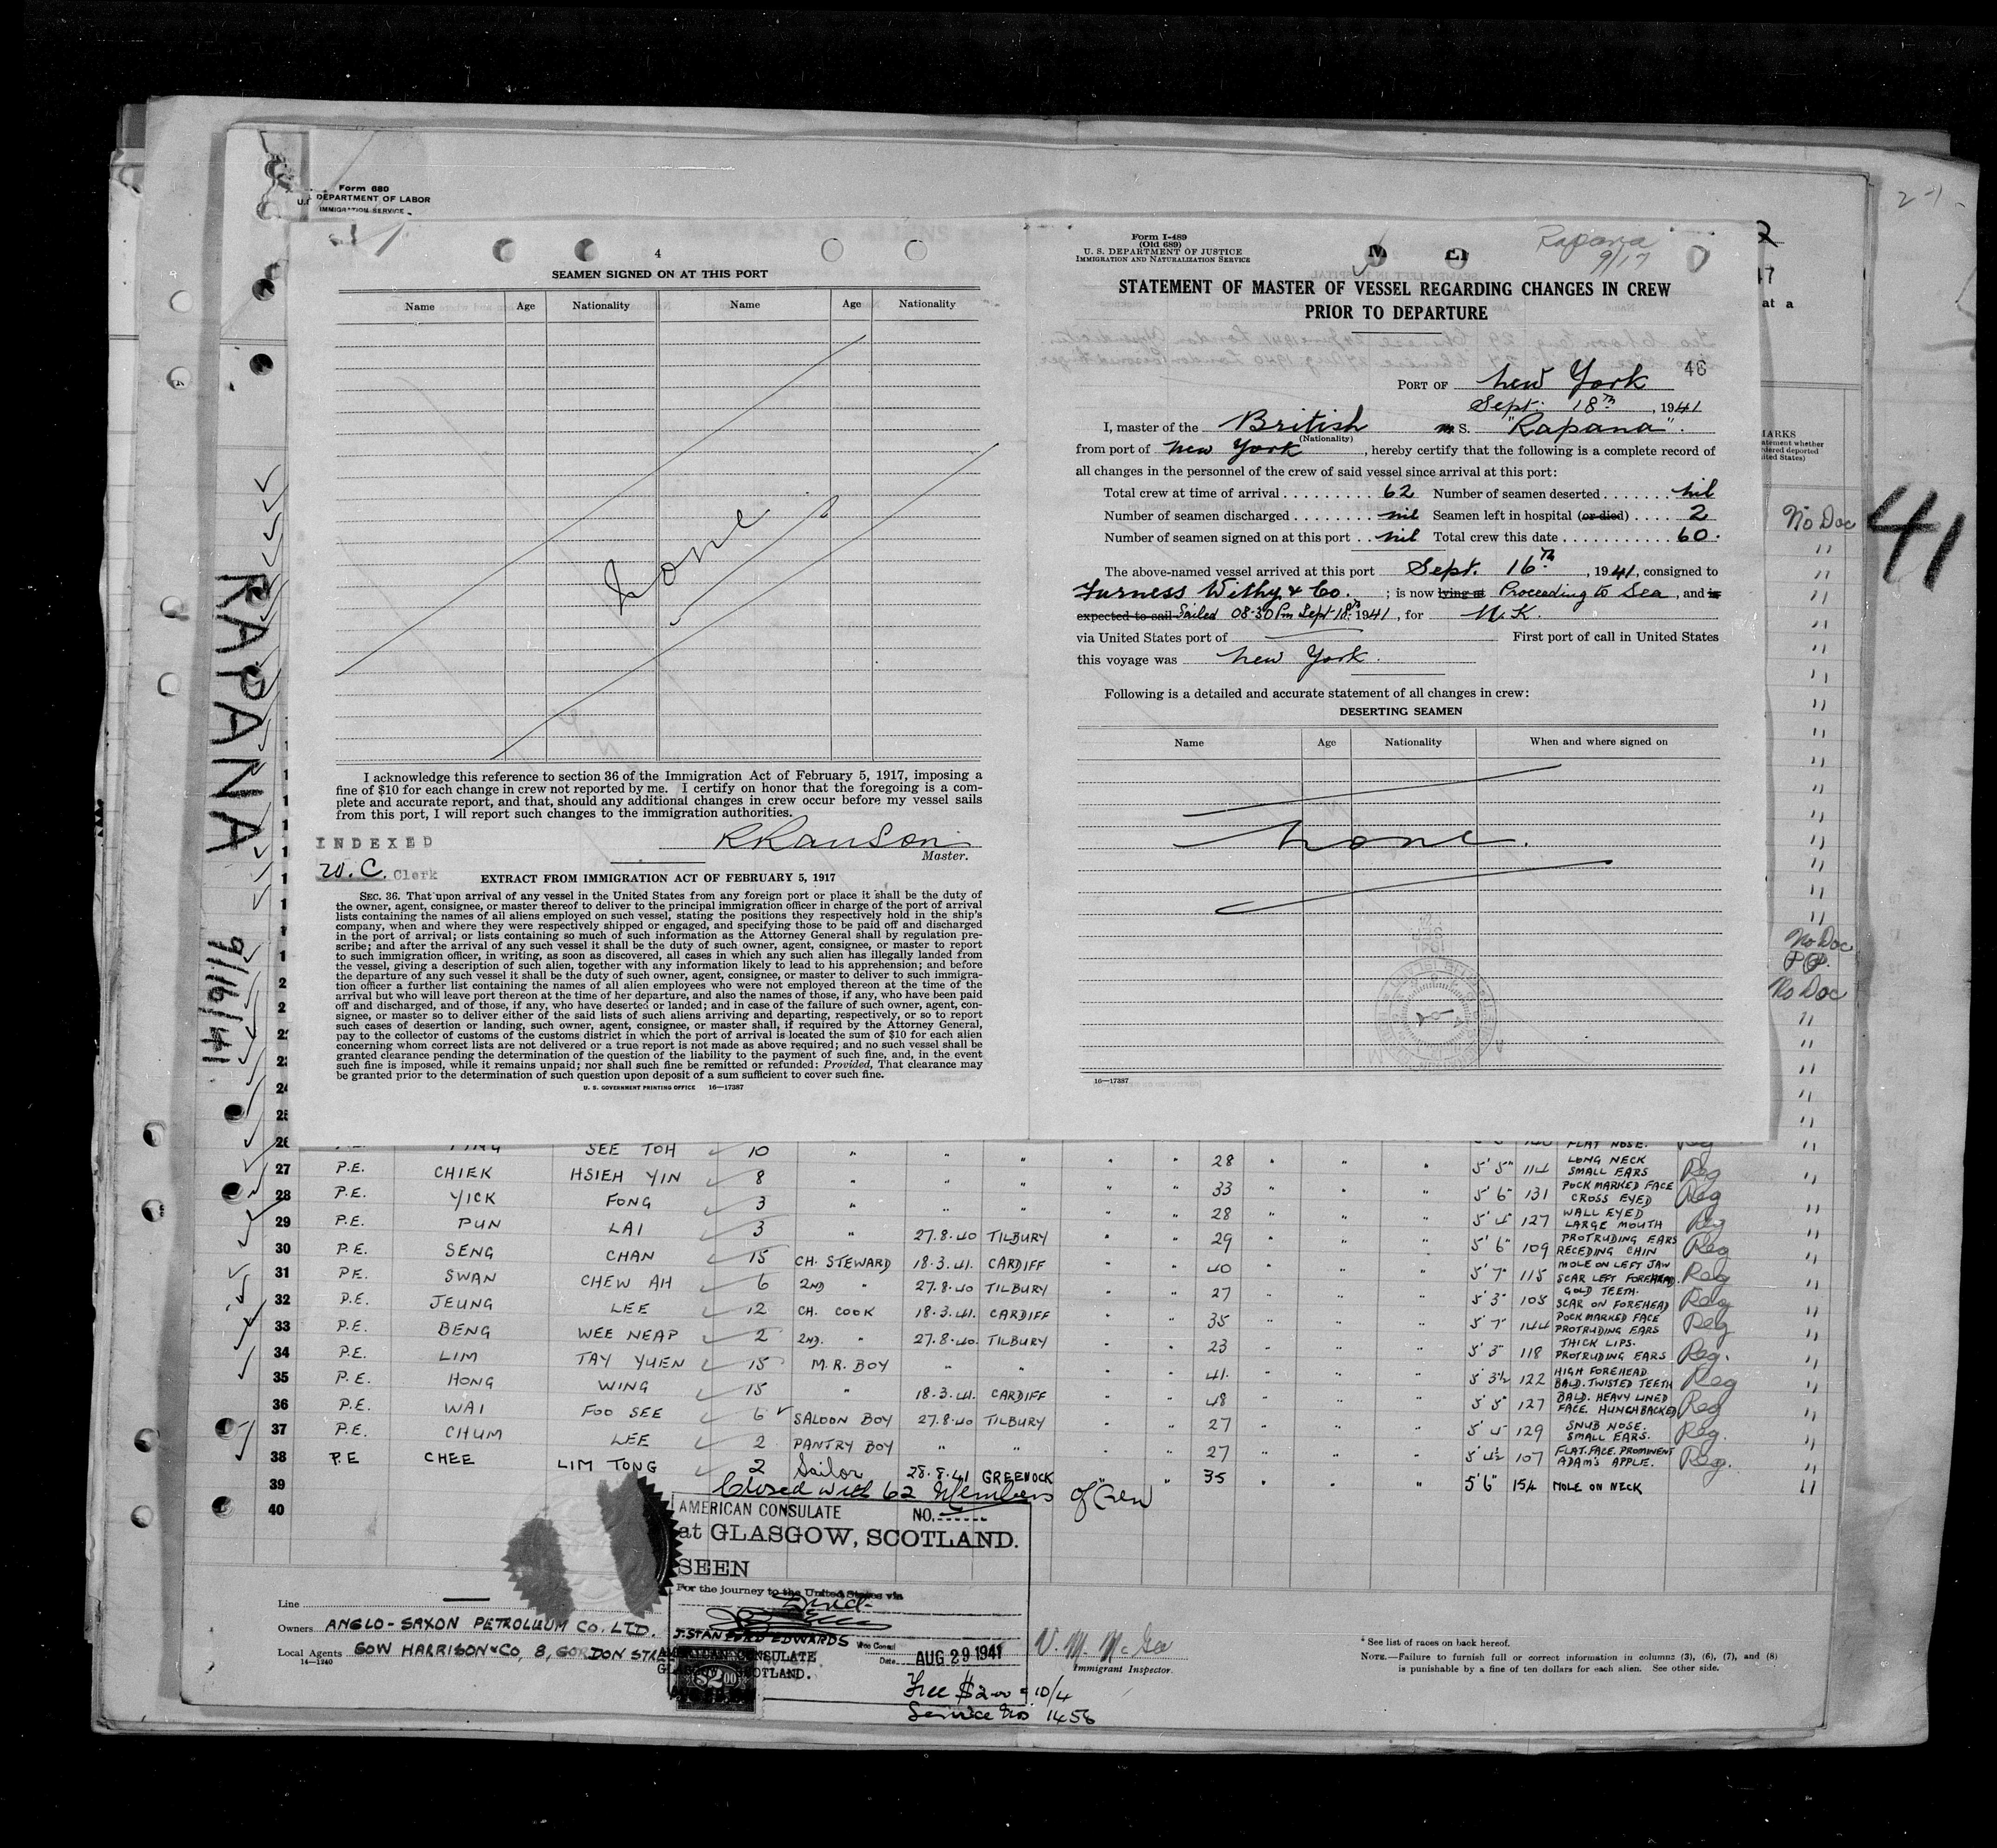 Form 680
DEPARTMENT OF LABOR
IMMIGRATION SERVICE
4
SEAMEN SIGNED ON AT THIS PORT
Name Age Nationality Name Age Nationality
None
I acknowledge this reference to section 36 of the Immigration Act of February 5, 1917, imposing a
fine of $10 for each change in crew not reported by me. I certify on honor that the foregoing is a com-
plete and accurate report, and that, should any additional changes in crew occur before my vessel sails
from this port, I will report such changes to the immigration authorities.
INDEXED
W. C. Clerk
RRanson
Master.
EXTRACT FROM IMMIGRATION ACT OF FEBRUARY 5, 1917
SEC. 36. That upon arrival of any vessel in the United States from any foreign port or place it shall be the duty of
the owner, agent, consignee, or master thereof to deliver to the principal immigration officer in charge of the port of arrival
lists containing the names of all aliens employed on such vessel, stating the positions they respectively hold in the ship's
company, when and where they were respectively shipped or engaged, and specifying those to be paid off and discharged
in the port of arrival; or lists containing so much of such information as the Attorney General shall by regulation pre-
scribe; and after the arrival of any such vessel it shall be the duty of such owner, agent, consignee, or master to report
to such immigration officer, in writing, as soon as discovered, all cases in which any such alien has illegally landed from
the vessel, giving a description of such alien, together with any information likely to lead to his apprehension; and before
the departure of any such vessel it shall be the duty of such owner, agent, consignee, or master to deliver to such immigra-
tion officer a further list containing the names of all alien employees who were not employed thereon at the time of the
arrival but who will leave port thereon at the time of her departure, and also the names of those, if any, who have been paid
off and discharged, and of those, if any, who have deserted or landed; and in case of the failure of such owner, agent, con-
signee, or master so to deliver either of the said lists of such aliens arriving and departing, respectively, or so to report
such cases of desertion or landing, such owner, agent, consignee, or master shall, if required by the Attorney General,
pay to the collector of customs of the customs district in which the port of arrival is located the sum of $10 for each alien
concerning whom correct lists are not delivered or a true report is not made as above required; and no such vessel shall be
granted clearance pending the determination of the question of the liability to the payment of such fine, and, in the event
such fine is imposed, while it remains unpaid; nor shall such fine be remitted or refunded: Provided, That clearance may
be granted prior to the determination of such question upon deposit of a sum sufficient to cover such fine.
U. S. GOVERNMENT PRINTING OFFICE 16—17387
Form I-489
(Old 689)
U. S. DEPARTMENT OF JUSTICE
IMMIGRATION AND NATURALIZATION SERVICE
Rapana
9/17
STATEMENT OF MASTER OF VESSEL REGARDING CHANGES IN CREW
PRIOR TO DEPARTURE
46
PORT OF New York
Sept: 18th, 1941
I, master of the British m S. "Rapana".
(Nationality)
from port of New York, hereby certify that the following is a complete record of
all changes in the personnel of the crew of said vessel since arrival at this port:
Total crew at time of arrival 62 Number of seamen deserted nil
Number of seamen discharged nil Seamen left in hospital (or died) 2
Number of seamen signed on at this port nil Total crew this date 60.
The above-named vessel arrived at this port Sept. 16th, 1941, consigned to
Furness Withy & Co. ; is now lying at Proceeding to Sea, and is
expected to sail Sailed 08·30 Pm Sept 18th 1941, for U.K.
via United States port of First port of call in United States
this voyage was New York.
Following is a detailed and accurate statement of all changes in crew:
DESERTING SEAMEN
Name Age Nationality When and where signed on
None.
16—17387
RAPANA
9/16/41
41
No Doc
No Doc
P.P.
No Doc
26 SEE TOH 10 " " " " " 28 " " " FLAT NOSE. Reg "
27 P.E. CHIEK HSIEH YIN 8 " " " " " 33 " " " 5' 5" 114 LONG NECK SMALL EARS Reg "
28 P.E. YICK FONG 3 " " " " " 28 " " " 5' 6" 131 POCK MARKED FACE CROSS EYED Reg "
29 P.E. PUN LAI 3 " 27.8.40 TILBURY " " 29 " " " 5' 4" 127 WALL EYED LARGE MOUTH Reg "
30 P.E. SENG CHAN 15 CH. STEWARD 18.3.41. CARDIFF " " 40 " " " 5' 6" 109 PROTRUDING EARS RECEDING CHIN Reg "
31 P.E. SWAN CHEW AH 6 2ND " 27.8.40 TILBURY " " 27 " " " 5' 7" 115 MOLE ON LEFT JAW SCAR LEFT FOREHEAD. Reg "
32 P.E. JEUNG LEE 12 CH. COOK 18.3.41. CARDIFF " " 35 " " " 5' 3" 105 GOLD TEETH. SCAR ON FOREHEAD Reg "
33 P.E. BENG WEE NEAP 2 2ND. " 27.8.40. TILBURY " " 23 " " " 5' 7" 144 POCK MARKED FACE PROTRUDING EARS Reg "
34 P.E. LIM TAY YUEN 15 M.R. BOY " " " " 41. " " " 5' 3" 118 THICK LIPS. PROTRUDING EARS Reg. "
35 P.E. HONG WING 15 " 18.3.41. CARDIFF " " 48 " " " 5' 3½ 122 HIGH FOREHEAD BALD. TWISTED TEETH Reg "
36 P.E. WAI FOO SEE 6 SALOON BOY 27.8.40 TILBURY " " 27 " " " 5' 5" 127 BALD. HEAVY LINED FACE. HUNCHBACKED Reg "
37 P.E. CHUM LEE 2 PANTRY BOY " " " " 27 " " " 5' 5 129 SNUB NOSE. SMALL EARS. Reg. "
38 P.E CHEE LIM TONG 2 Sailor 28.8.41 GREENOCK " " 35 " " " 5' 4½ 107 FLAT. FACE. PROMINENT ADAM'S APPLE. Reg. "
39 5'6" 154 MOLE ON NECK "
Closed with 62 Members of Crew
40
AMERICAN CONSULATE NO.
at GLASGOW, SCOTLAND.
SEEN
For the journey to the United States via
J. STANFORD EDWARDS Vice Consul
AMERICAN CONSULATE
GLASGOW SCOTLAND.
Date AUG 29 1941
$2.00
Fee $2.00 = 10/4
Service No 1456
Line
Owners ANGLO-SAXON PETROLEUM CO. LTD.
Local Agents GOW HARRISON & CO, 8, GORDON
14—1240
V. M. McGee
Immigrant Inspector.
* See list of races on back hereof.
NOTE.—Failure to furnish full or correct information in columns (3), (6), (7), and (8)
is punishable by a fine of ten dollars for each alien. See other side.